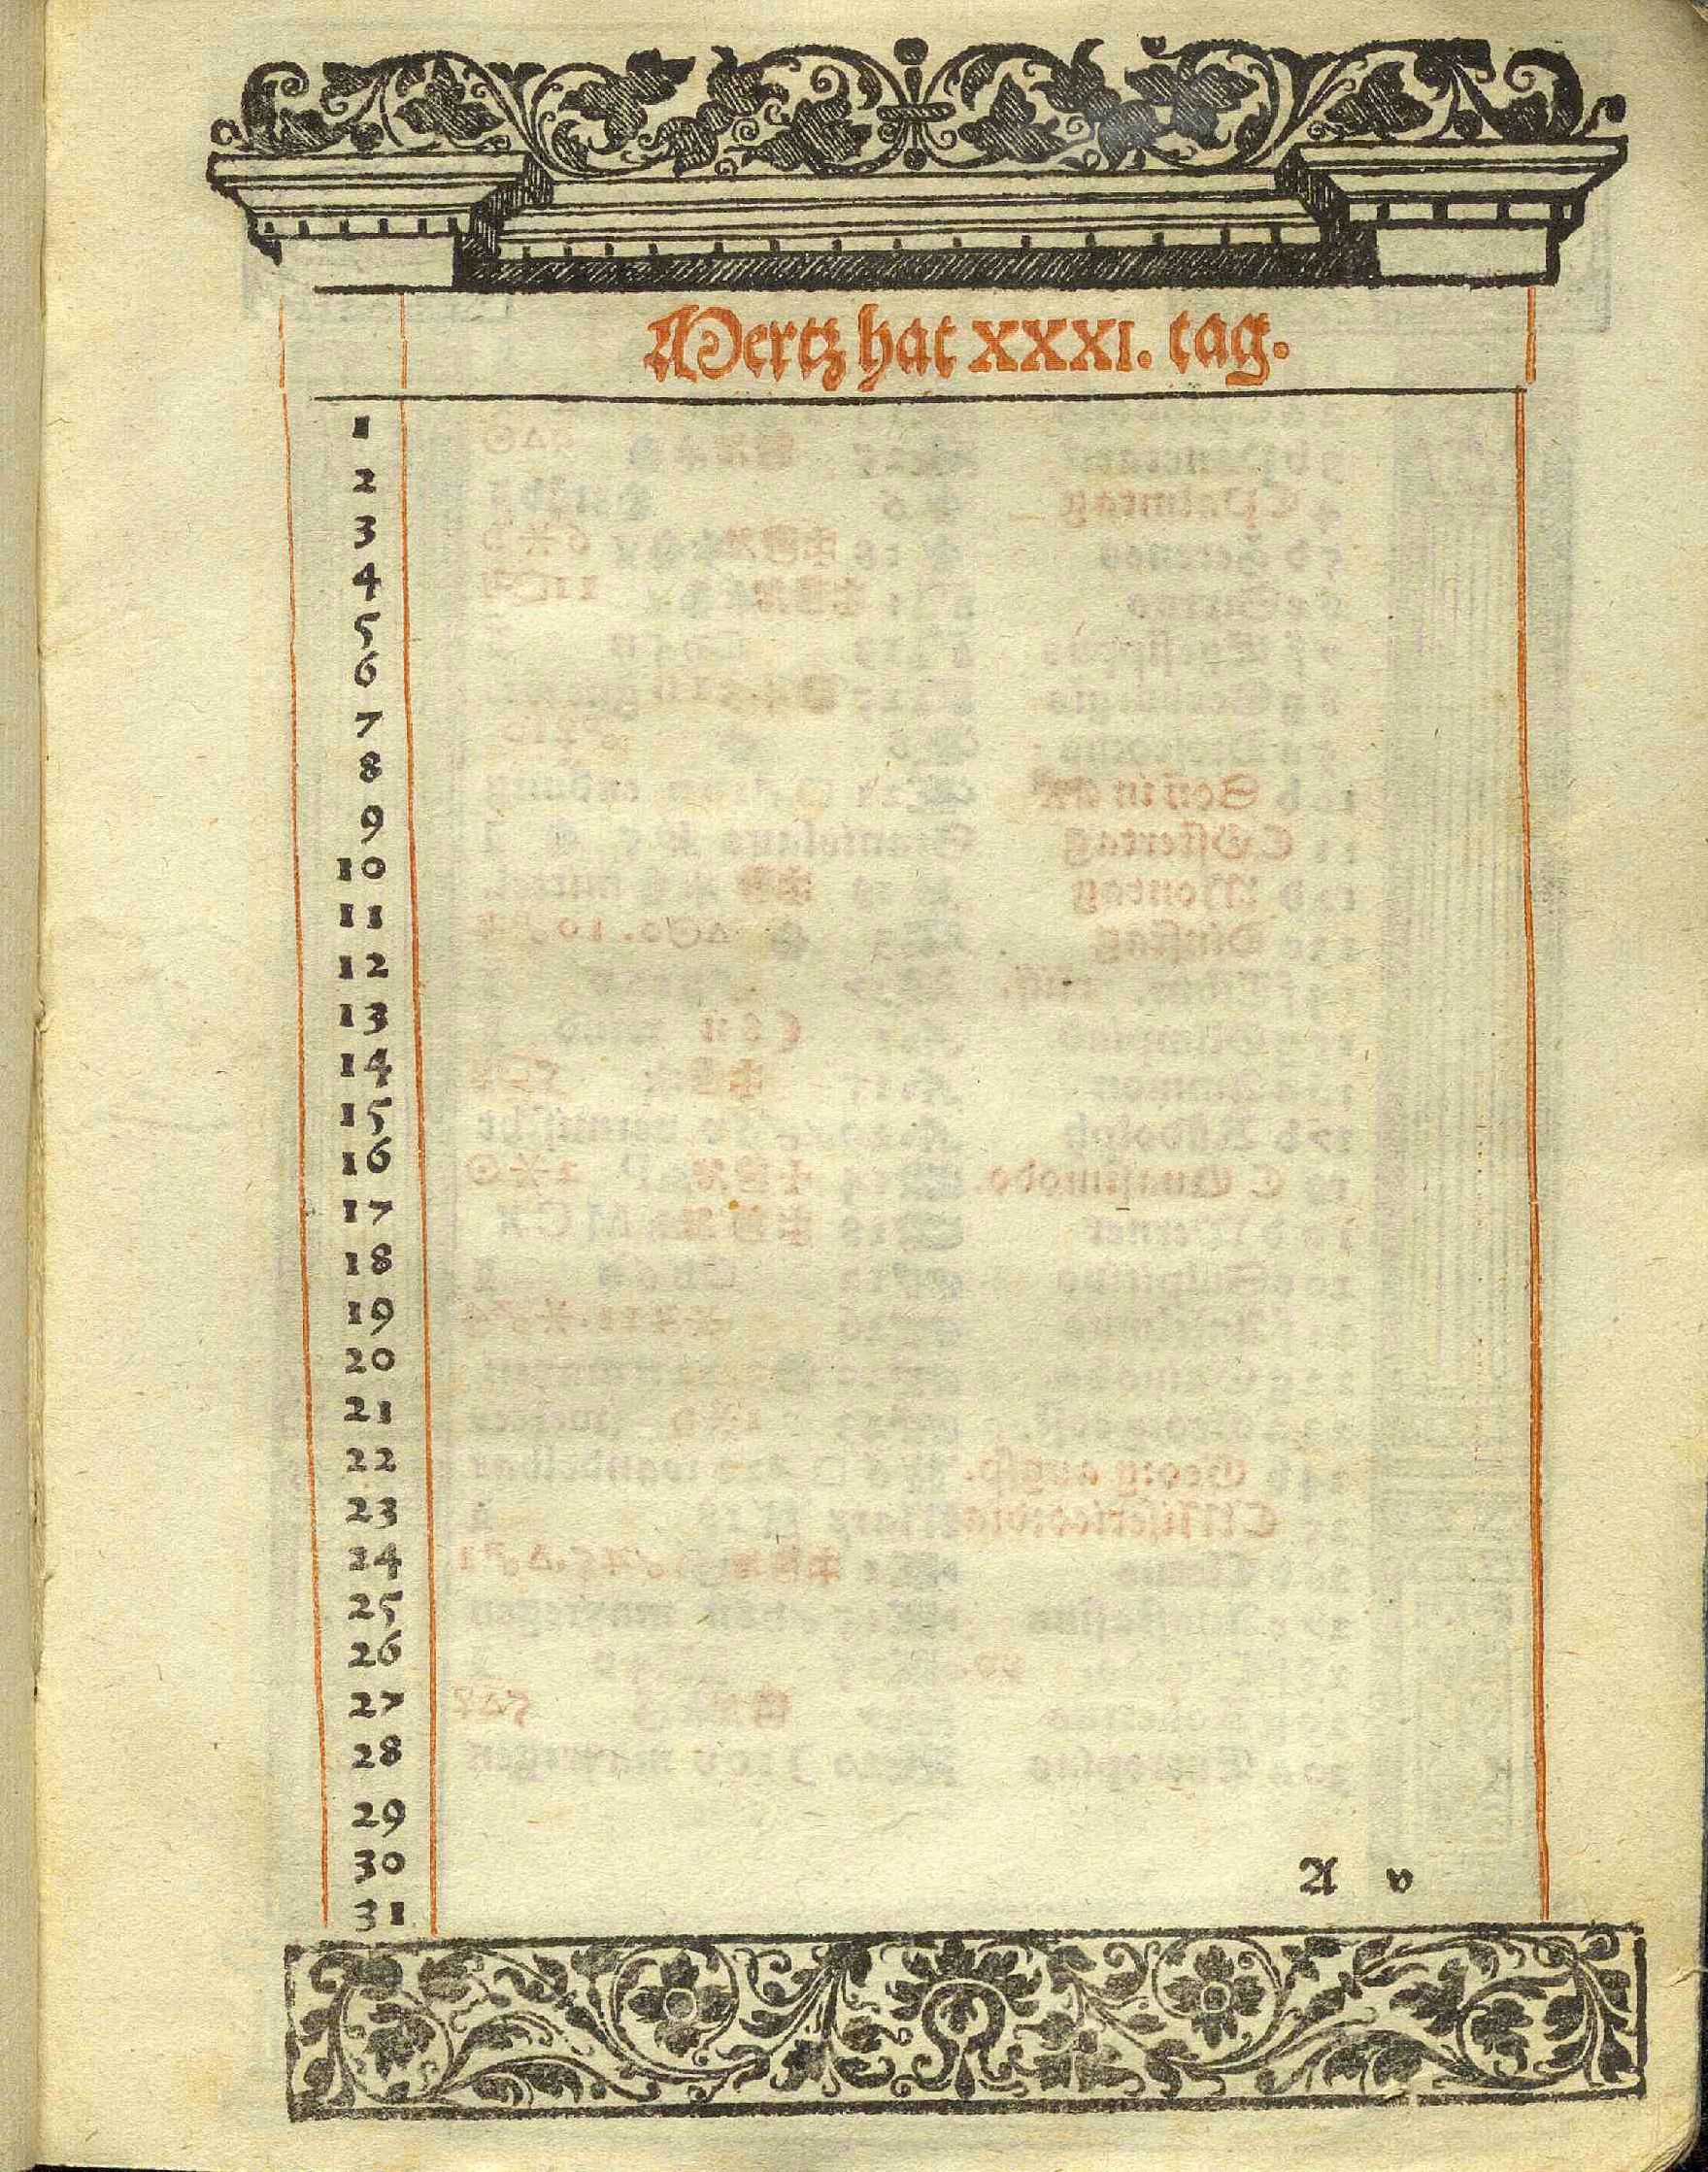 Mertz hat XXXI. tag.
1
2
3
4
5
6
7
8
9
10
11
12
13
14
15
16
17
18
19
20
21
22
23
24
25
26
27
28
29
30
A v
31